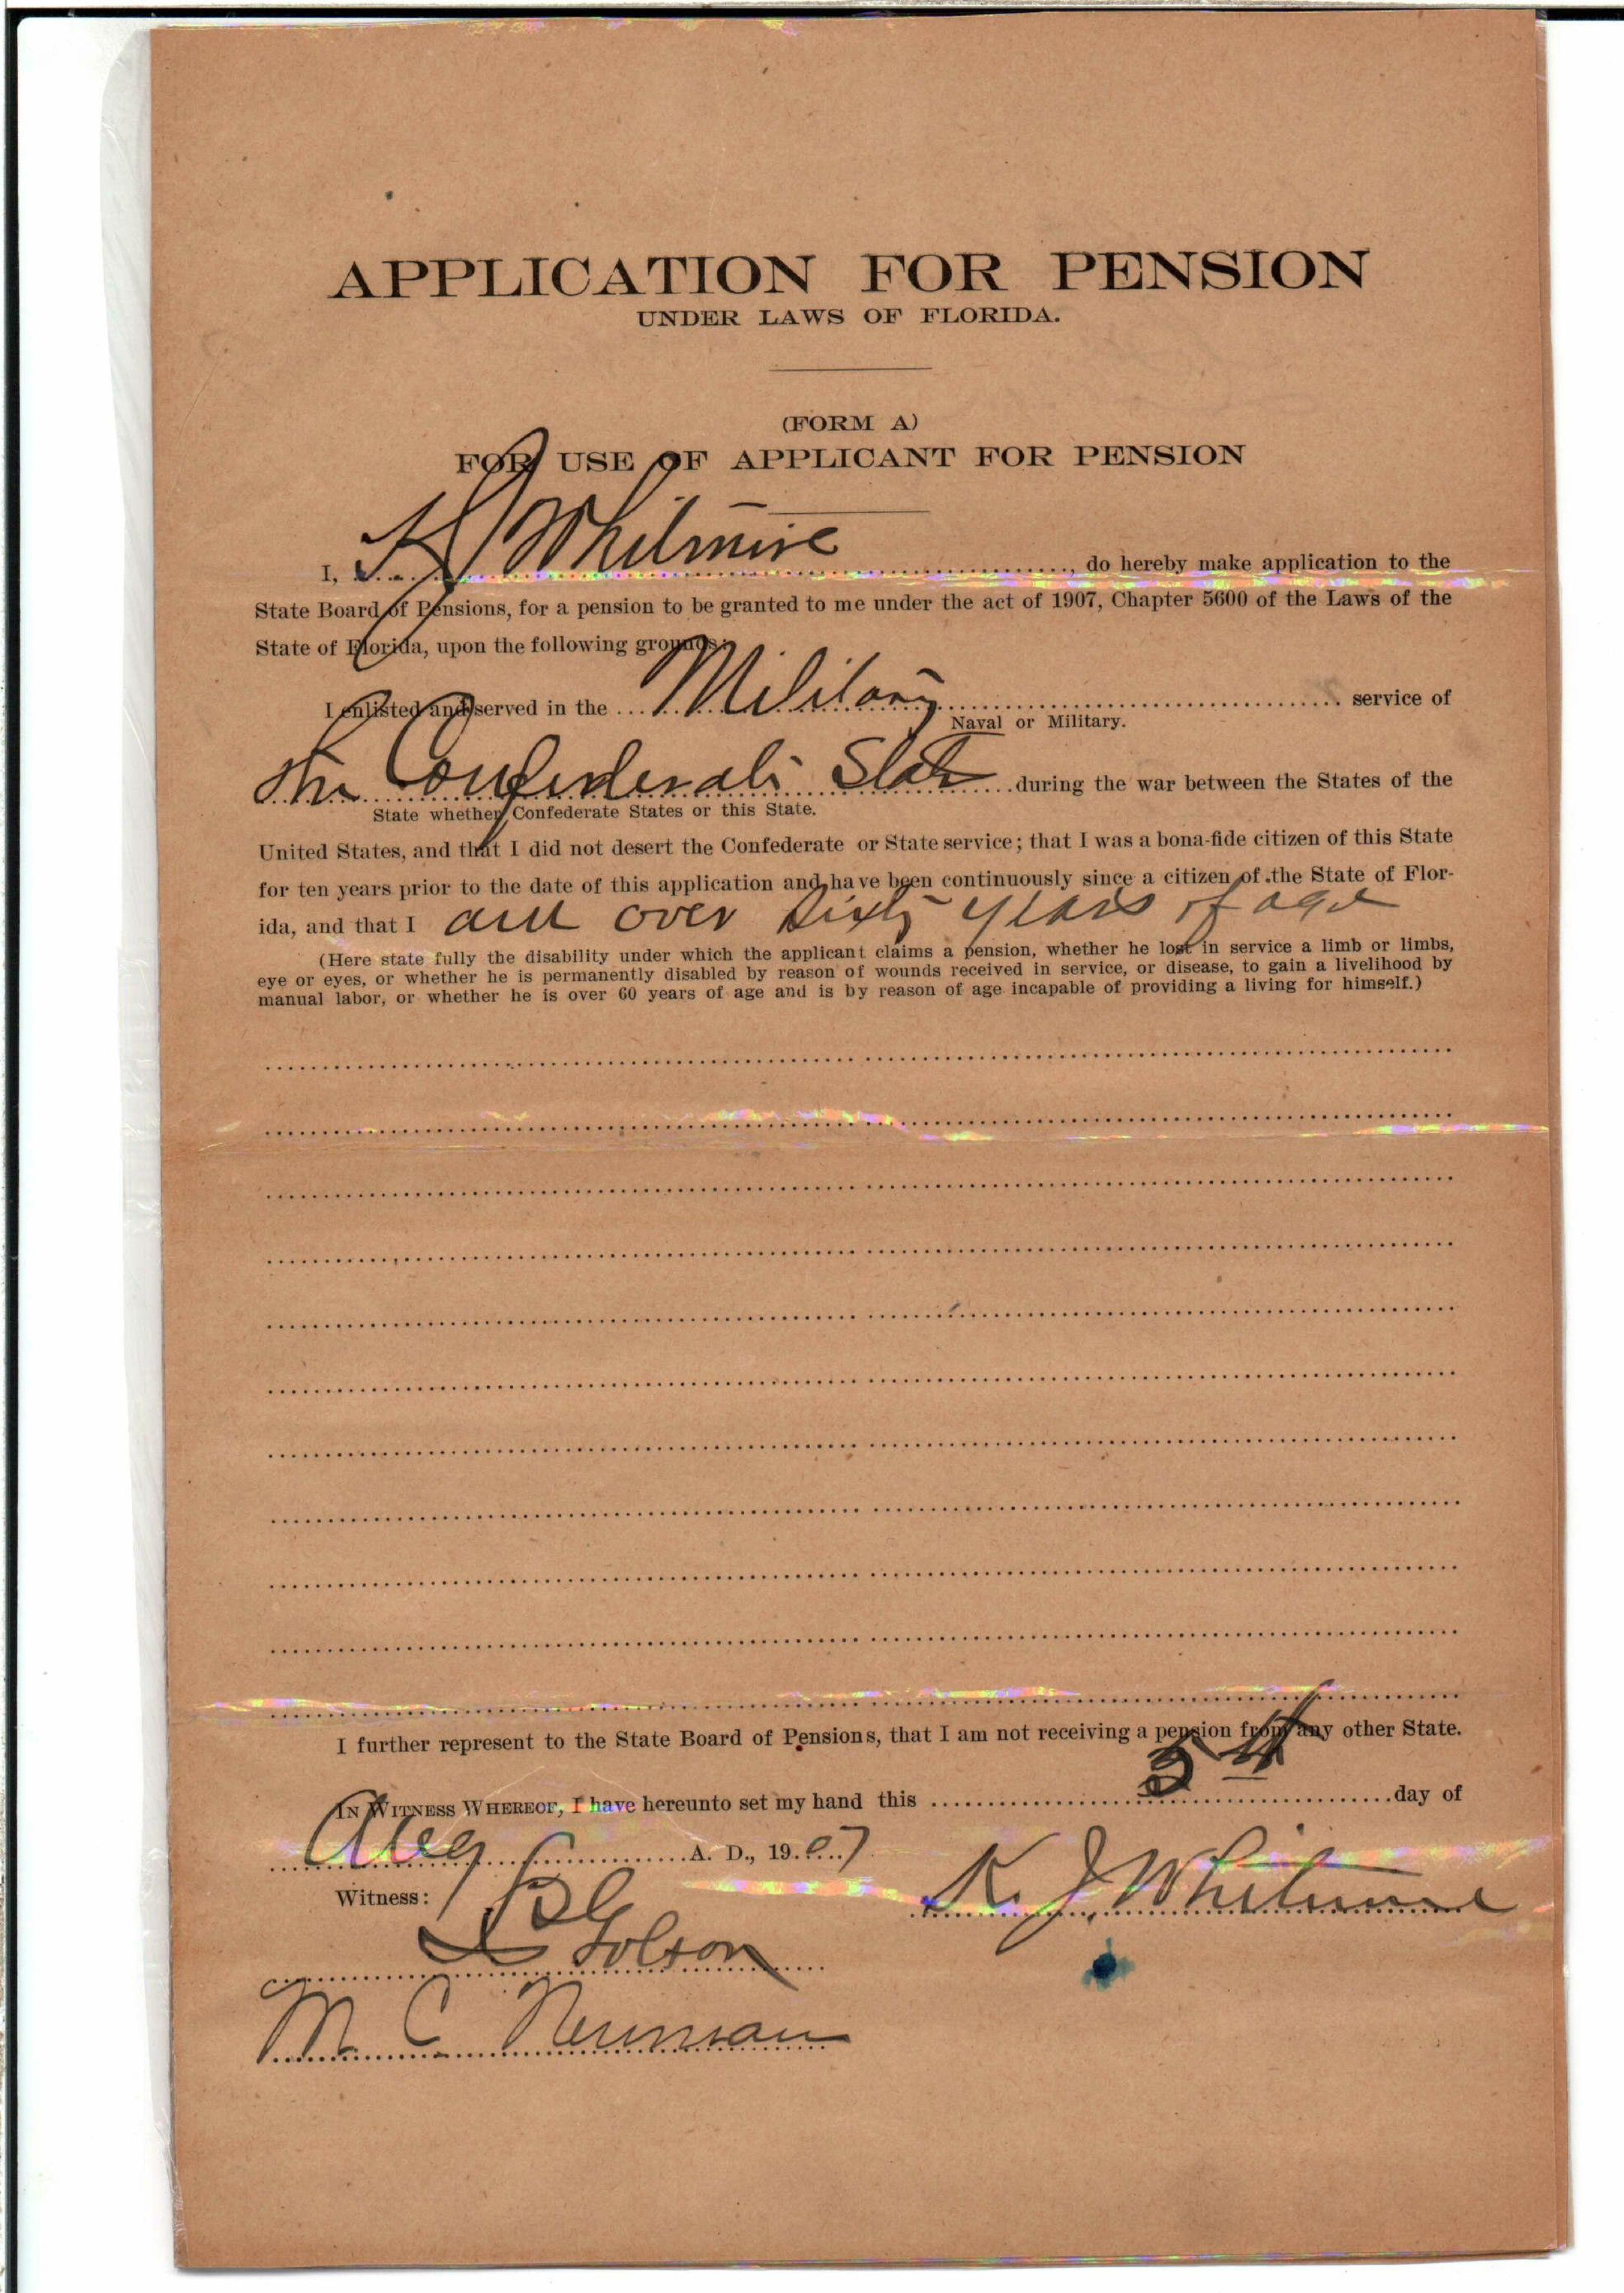 APPLICATION FOR PENSION
UNDER LAWS OF FLORIDA.
(FORM A)
FOR USE OF APPLICANT FOR PENSION
I, K J Whitmire, do hereby make application to the
State Board of Pensions, for a pension to be granted to me under the act of 1907, Chapter 5600 of the Laws of the
State of Florida, upon the following grounds:
I enlisted and served in the Military service of
Naval or Military.
the Confederate States during the war between the States of the
State whether Confederate States or this State.
United States, and that I did not desert the Confederate or State service; that I was a bona-fide citizen of this State
for ten years prior to the date of this application and have been continuously since a citizen of the State of Flor-
ida, and that I am over sixty years of age
(Here state fully the disability under which the applicant claims a pension, whether he lost in service a limb or limbs,
eye or eyes, or whether he is permanently disabled by reason of wounds received in service, or disease, to gain a livelihood by
manual labor, or whether he is over 60 years of age and is by reason of age incapable of providing a living for himself.)
I further represent to the State Board of Pensions, that I am not receiving a pension from any other State.
IN WITNESS WHEREOF, I have hereunto set my hand this 5th day of
Aug A. D., 1907
Witness: K. J. Whitmire
Golson
M. C. Newman